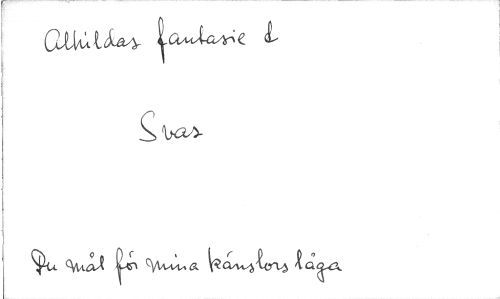 Alhildas fantasie d
Svas
Du mål för mina känslors låga